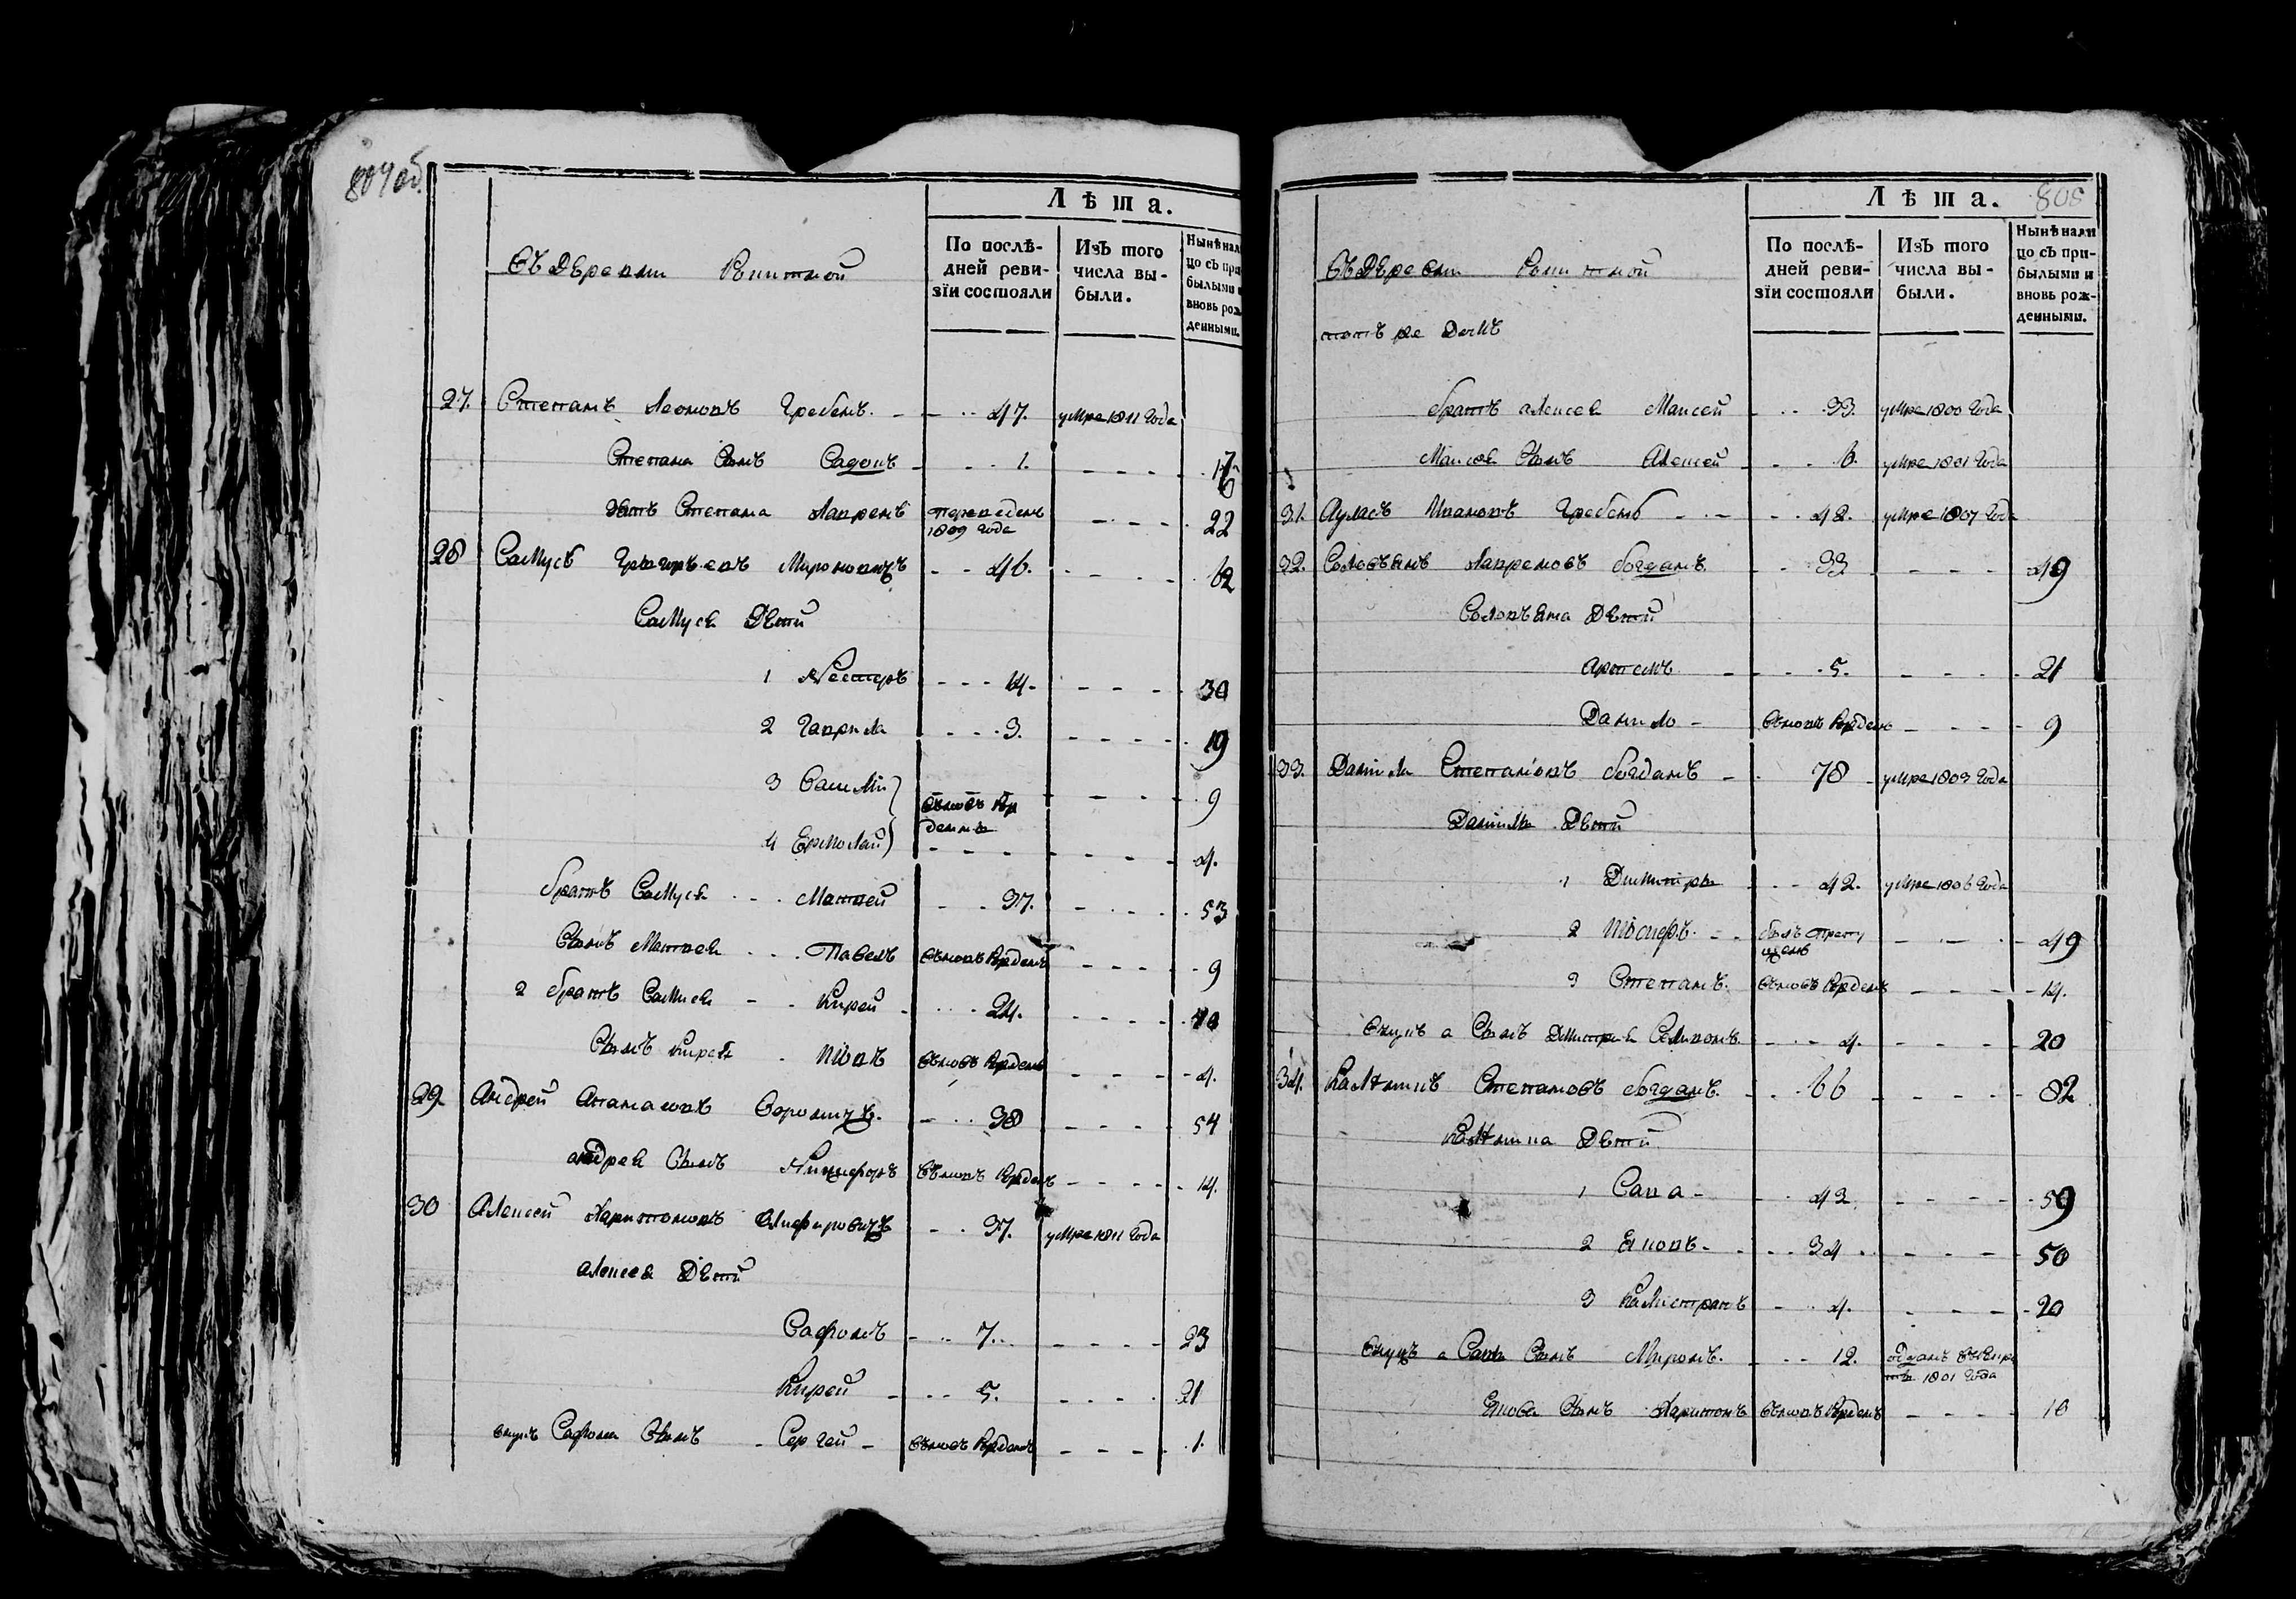 807 об.
Лѣта.
По послѣдней ревизіи состояли
Изъ того числа выбыли.
Нынѣ налицо съ прибылыми и вновь рожденными.
Въ деревни
27. Степанъ Леоновъ Гребень. 47. умре 1811 года
Степана сынъ Садонъ 1. 17
зять Степана Лавренъ переведенъ 1809 года 22
28 Самусь Григорьевъ Мироновичъ 46. 62
Самуся дѣти
1 Нестеръ 14. 30
2 Гаврила 3. 19
3 Василій 9
вновь рожденны
4 Ермолай 4.
братъ Самуся Матвей 37. 53
сынъ Матвея Павелъ вновь рожденъ 9
2 братъ Самуся Кирей 24. 40
сынъ Кирея Іовъ вновь рожденъ 4.
29. Андрей Апанасовъ 38 54
Андрея сынъ Никифоръ вновь рожденъ 14.
30 Алексей Харитоновъ Алифировичъ 37. умре 1811 года
Алексея дѣти
Сафонъ 7. 23
Кирей 5. 21
внукъ Сафона сынъ Сергей вновь рожденъ 1.
808
Лѣта.
По послѣдней ревизіи состояли
Изъ того числа выбыли.
Нынѣ налицо съ прибылыми и вновь рожденными.
Въ деревни
тотъ же домъ
братъ Алексея Маисей 33. умре 1800 года
Маисея сынъ Алексей 6. умре 1801 года
31. Ауласъ Ивановъ Гребень 42. умре 1807 года
32. Соловьянъ Лавреновъ Богданъ 33 49
Соловьяна дѣти
Артемъ 5. 21
Данило вновь рожденъ 9
33. Данила Степановъ Богданъ 78 умре 1803 года
Данила дѣти
1 Дмитръ 42. умре 1806 года
2 Іосифъ. былъ 49
3 Степанъ. вновь рожденъ 14.
внукъ а сынъ Дмитрия 4. 20
34. Калѣникъ Степановъ Богданъ. 66 82
Калѣника дѣти
1 Сава 43 59
2 Яковъ 34 50
3 Калістратъ 4. 20
внукъ а Савы сынъ Миронъ. 12. отданъ въ рекруты 1801 года
Якова сынъ Харитонъ вновь рожденъ 10